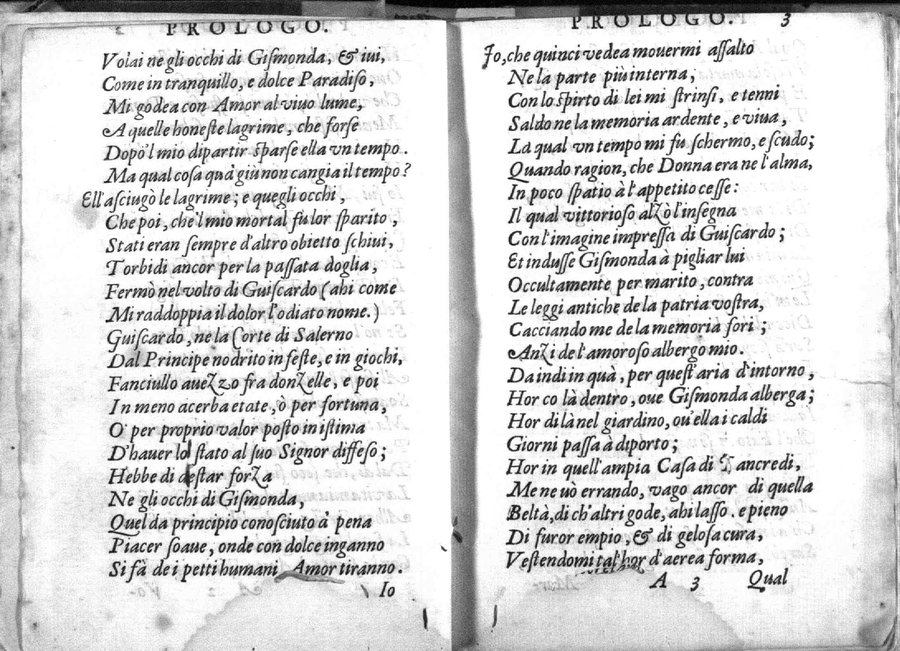 PROLOGO.
Volai ne gli occhi di Gismonda, & iui,
Come in tranquillo, e dolce Paradiso,
Mi godea con Amor al viuo lume,
A quelle honeste lagrime, che forse
Dopò'l mio dipartir sparse ella vn tempo.
Ma qual cosa quà giù non cangia il tempo?
Ell'asciugò le lagrime; e quegli occhi,
Che poi, che'l mio mortal fu lor sparito,
Stati eran sempre d'altro obietto schiui,
Torbidi ancor per la passata doglia,
Fermò nel volto di Guiscardo (ahi come
Mi raddoppia il dolor l'odiato nome.)
Guiscardo, ne la Corte di Salerno
Dal Principe nodrito in feste, e in giochi,
Fanciullo auezzo fra donzelle, e poi
In meno acerba etate, ò per fortuna,
O' per proprio valor posto in istima
D'hauer lo stato al suo Signor diffeso;
Hebbe di destar forza
Ne gli occhi di Gismonda,
Quel da principio conosciuto à pena
Piacer soaue, onde con dolce inganno
Si fà de i petti humani Amor tiranno.
Io
PROLOGO. 3
Io, che quinci vedea mouermi assalto
Ne la parte più interna;
Con lo spirto di lei mi strinsi, e tenni
Saldo ne la memoria ardente, e viua,
La qual vn tempo mi fu schermo, e scudo;
Quando ragion, che Donna era ne l'alma,
In poco spatio à l'appetito cesse:
Il qual vittorioso alzò l'insegna
Con l'imagine impressa di Guiscardo;
Et indusse Gismonda à pigliar lui
Occultamente per marito, contra
Le leggi antiche de la patria vostra,
Cacciando me de la memoria fori;
Anzi de l'amoroso albergo mio.
Da indi in quà, per quest'aria d'intorno,
Hor co là dentro, oue Gismonda alberga;
Hor di là nel giardino, ou'ella i caldi
Giorni passa à diporto;
Hor in quell'ampia Casa di Tancredi,
Me ne uò errando, vago ancor di quella
Beltà, di ch'altri gode, ahi lasso. e pieno
Di furor empio, & di gelosa cura,
Vestendomi tal'hor d'aerea forma,
A 3 Qual